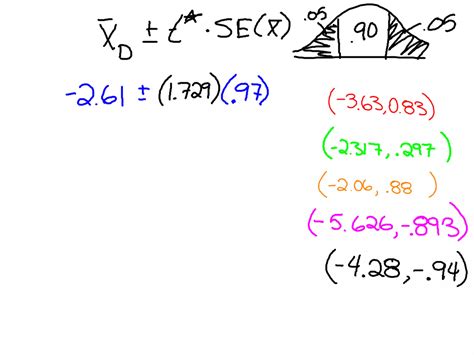 x̄_D ± t* · SE(x̄) .05 .90 .05
-2.61 ± (1.729)(.97)
(-3.63, 0.83)
(-2.317, .297)
(-2.06, .88)
(-5.626, -.893)
(-4.28, -.94)